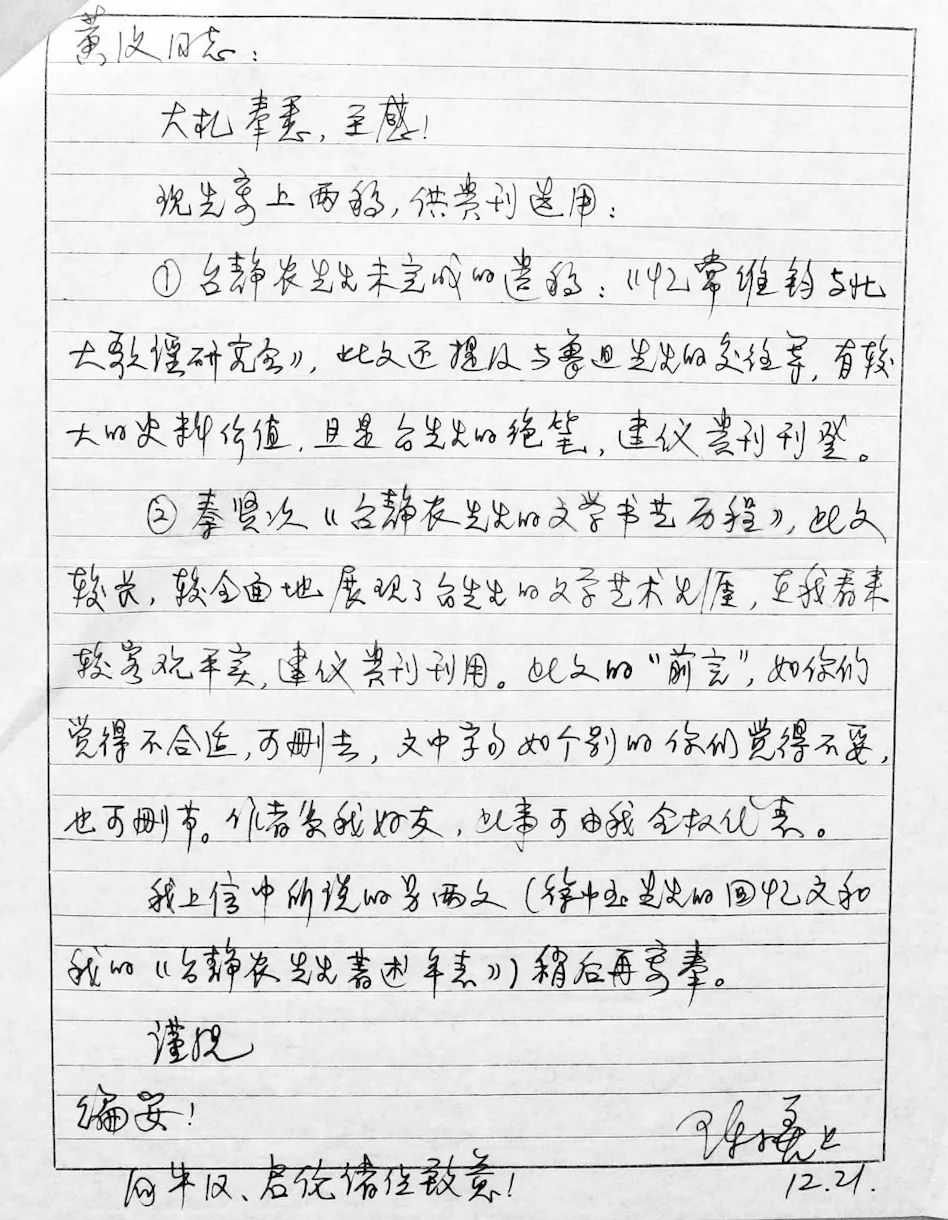 黄汶同志：
大札奉悉，至感！
现先寄上两稿，供贵刊选用：
①台静农先生未完成的遗稿：《忆常维钧与北
大歌谣研究会》，此文还提及与鲁迅先生的交往等，有较
大的史料价值，且是台先生的绝笔，建议贵刊刊登。
②秦贤次《台静农先生的文学书艺历程》，此文
较长，较全面地展现了台先生的文学艺术生涯，在我看来
较客观平实，建议贵刊刊用。此文的“前言”，如你们
觉得不合适，可删去，文中字句如个别的你们觉得不妥，
也可删节。作者系我好友，此事可由我全权代表。
我上信中所说的另两文（徐中玉先生的回忆文和
我的《台静农先生著述年表》）稍后再寄奉。
谨祝
编安！
陈子善上
12.21.
向牛汉、启伦诸位致意！